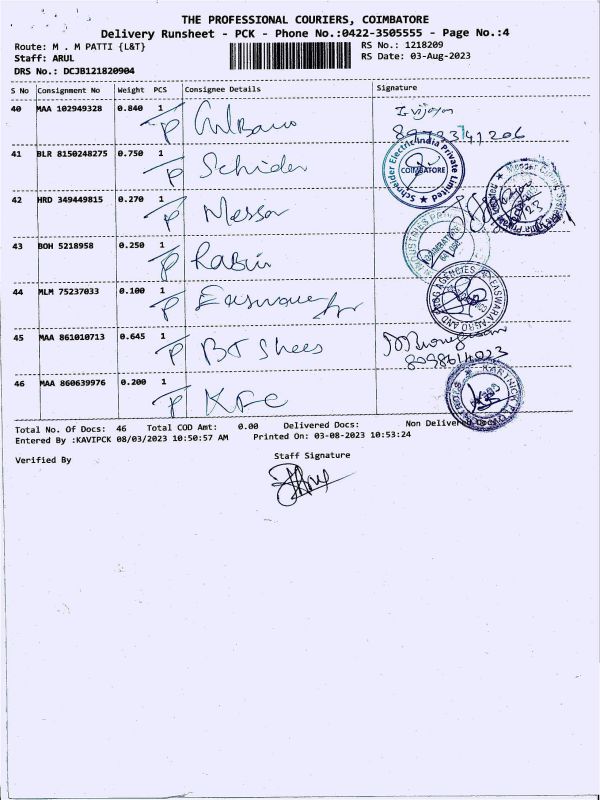 THE PROFESSIONAL COURIERS, COIMBATORE
Delivery Runsheet - PCK - Phone No.:0422-3505555 - Page No.:4
Route: M . M PATTI {L&T} RS No.: 1218209
Staff: ARUL RS Date: 03-Aug-2023
DRS No.: DCJB121820904
S No Consignment No Weight PCS Consignee Details Signature
40 MAA 102949328 0.840 1
41 BLR 8150248275 0.750 1 Schider
Schneider Electric India Private Limited
COIMBATORE
42 HRD 349449815 0.270 1 Messar
43 BOH 5218958 0.250 1 Rabin
44 MLM 75237033 0.100 1
45 MAA 861010713 0.645 1 BT Shees
46 MAA 860639976 0.200 1 KFC
Total No. Of Docs: 46 Total COD Amt: 0.00 Delivered Docs: Non Delivered Docs:
Entered By :KAVIPCK 08/03/2023 10:50:57 AM Printed On: 03-08-2023 10:53:24
Verified By Staff Signature